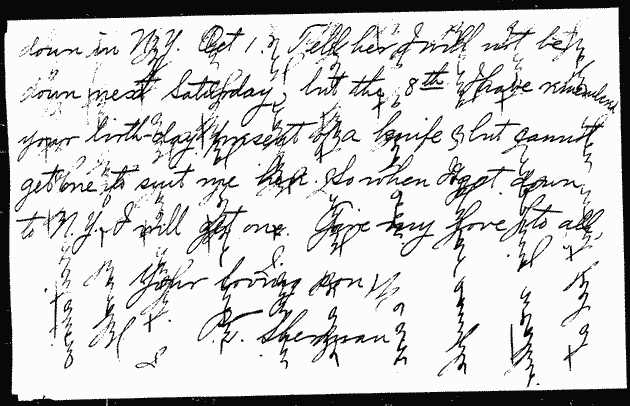 down in N.Y. Oct 1. Tell her I will not be
down next Saturday, but the 8th I have remembered
your birth-day present of a knife but cannot
get one to suit me here. So when I get down
to N.Y. I will get one. Give my love to all,
Your loving son
T. Sherman